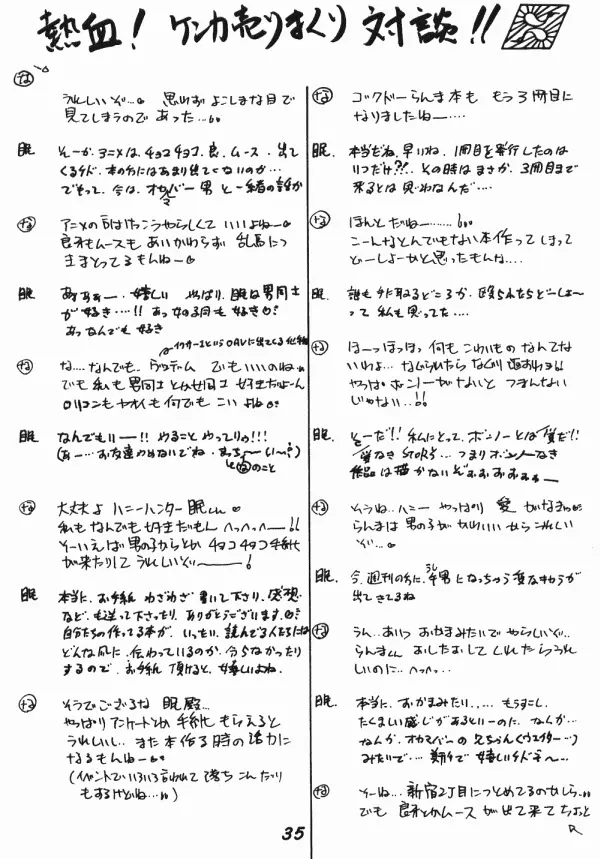 熱血! ケンカ売りまくり 対談!!
な
うれしいぞ…。 思わず よこしまな目で
見てしまうので あった…。
眠
そーか、アニメは、チョコチョコ、良、ムース、出て
くるけど、本の方にはあまり出てこないのか…
でもって、今は、オカマバー男と一緒の話か
な
アニメの 良はけっこうやらしくて いいよね〜
良牙もムースも あいかわらず 乱馬につ
きまとってるもんね〜
眠
ああぁー、嬉しい やっぱり、眠は男同士
が好き…!! あっ女の子同士も好き!
あっ なんでも 好き
な
な…なんでも.. でもいいのね..
でも 私も 男同士 とか女同士 好きだよーん
ロリコンも ヤオイも何でも こい よね
眠
なんでもいー!! やること やってりゃ!!!
のこと
な
大丈夫よ ハニーハンター 眠くん
私も なんでも 好きだもん へっへっへー!!
そーいえば 男の子からとか チョコチョコ手紙
が来たりして うれしいぞ〜!
眠
本当に、お手紙 わざわざ 書いて下さり、感想
なども送って下さったり、ありがとうございます。
自分たちの作ってる本が、いったい、読んでる人たちには
どんな風に、伝わっているのか、分らなかったり
するので、お手紙 頂けると、嬉しいよね。
な
そうでござるな 眠殿…
やっぱり アンケートとか 手紙 もらえると
うれしいし.. また 本作る時の 活力に
なるもんね〜
(イベントでいろいろ言われて 落ちこんだり
もするけどね…)
な
ゴックドーらんま本も もう3冊目に
なりましたね〜…
眠.
本当だね、早いね、1冊目を発行したのは
いつだっけ?!. その時は まさか、3冊目まで
来るとは 思わなんだ…
な
ほんとだね〜……!
こーんなとんでもない本作ってしまって
どーしよーかと思ったもんな…
眠.
誰も 引取るどころか、殴られたらどーしよー
って 私も思ってた…
な
ほーっほっほっ 何も こわいもの なんてな
いわよ… なぐられたら なぐり返すわよ!!
やっぱ ボンノーがないと つまんない
じゃない..!!
眠.
そーだ!! 私にとって、ボンノーとは 愛だ!!
愛なき STORY… つまりボンノーなき
作品は 描かないぞぉぉぉぉぉぉー
な
そうね.. ハニー やっぱり 愛 がなきゃ
らんまは 男の子が かわいいから うれしい
ぞ…。
眠.
今、週刊の方に、牛男になっちゃう 変なキャラが
うし
出てきてるね
な
うん… あいつ おかまみたいで やらしいぞ..
らんまくん おしたおして くれたら うれ
しいのに… へっへっ…
眠.
本当に、おかまみたい、… もう少し、
たくましい感じがあるといーのに、なんか…
なんか、オカマバーの
みたいで… 嬉しいけど〜…
な
そーね… 新宿2丁目に つとめてるのかしら…
でも 良牙とかムース が出て来て ちょっと
35